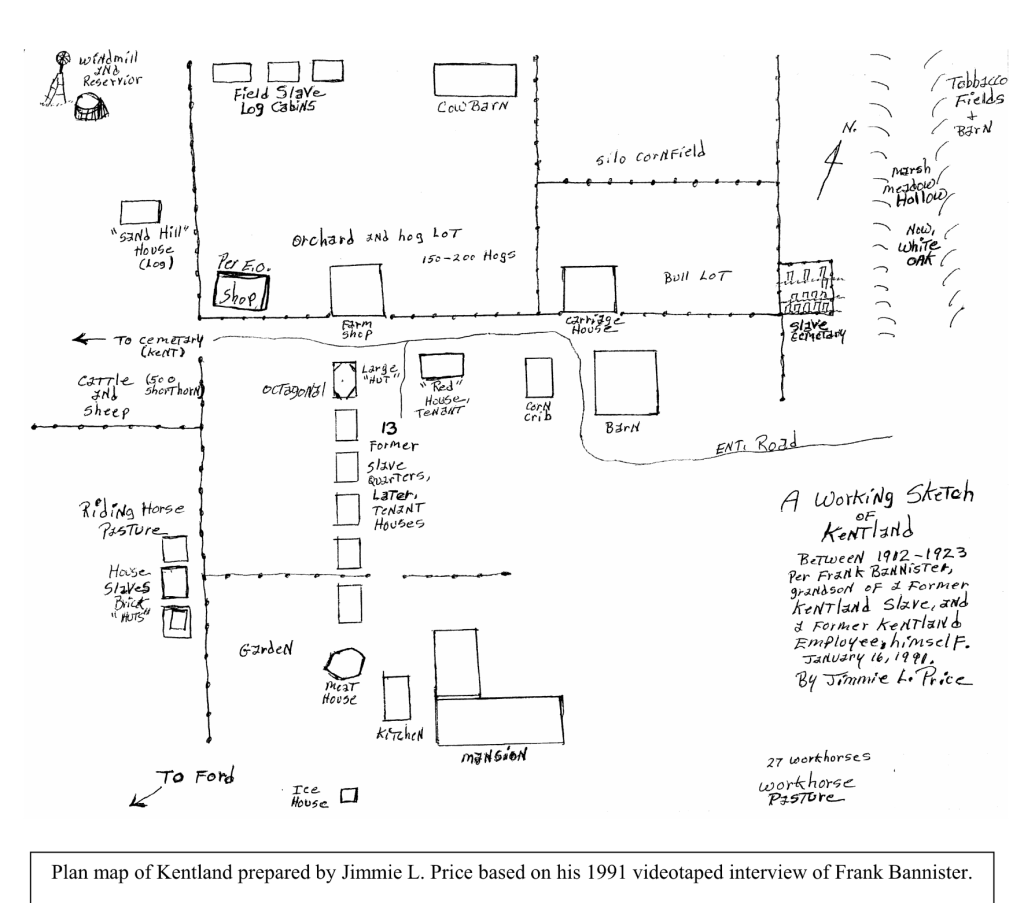 Windmill
and
Reservior
Field Slave
Log Cabins
Cow Barn
Tobbacco
Fields
+
Barn
N.
Silo Cornfield
Marsh
meadow
Hollow
Now,
White
Oak
"Sand Hill"
House
(Log)
Orchard and hog Lot
150-200 Hogs
Per E.O.
Shop
Bull Lot
Farm
Shop
Carriage
House
Slave
Cemetary
To cemetary
(Kent)
Cattle (500
and Shorthorn)
Sheep
Octagonal
Large
"Hut"
"Red"
House,
Tenant
Corn
Crib
Barn
13
Former
Slave
Quarters,
Later,
Tenant
Houses
Ent. Road
Riding Horse
Pasture
House
Slaves
Brick
"Huts"
A Working Sketch
of
Kentland
Between 1902-1923
Per Frank Bannister,
grandson of a Former
Kentland Slave, and
a Former Kentland
Employee, himself.
January 16, 1991.
By Jimmie L. Price
Garden
Meat
House
Kitchen
Mansion
To Ford
Ice
House
27 workhorses
workhorse
Pasture
Plan map of Kentland prepared by Jimmie L. Price based on his 1991 videotaped interview of Frank Bannister.